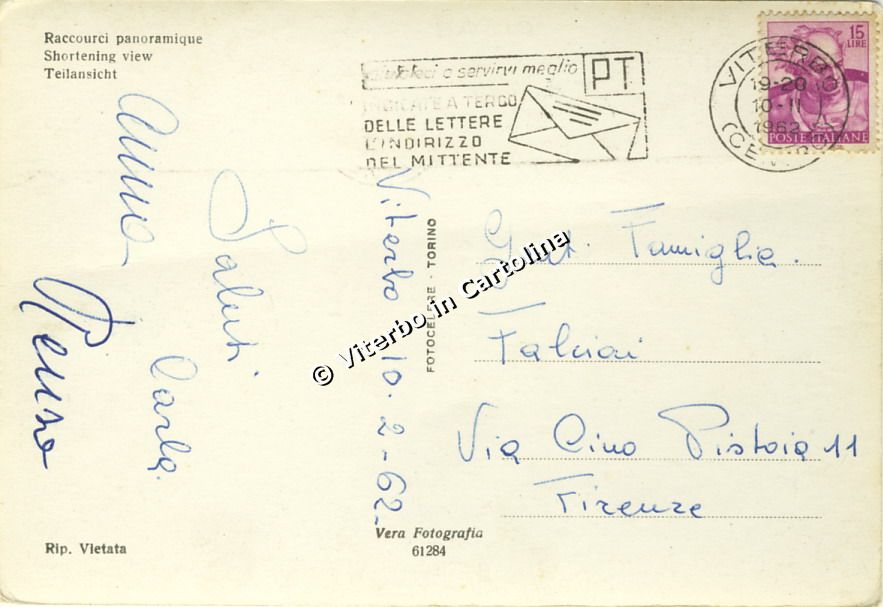 Raccourci panoramique
Shortening view
Teilansicht
a servirvi meglio
PT
INDICATE A TERGO
DELLE LETTERE
L'INDIRIZZO
DEL MITTENTE
VITERBO
19-20
10-II
1962
15
LIRE
POSTE ITALIANE
Anna
Saluti
Carla
Viterbo 10-2-62-
FOTOCELERE - TORINO
© Viterbo in Cartolina
Gent. Famiglia
Falciai
Via Cino Pistoia 11
Firenze
Vera Fotografia
61284
Rip. Vietata